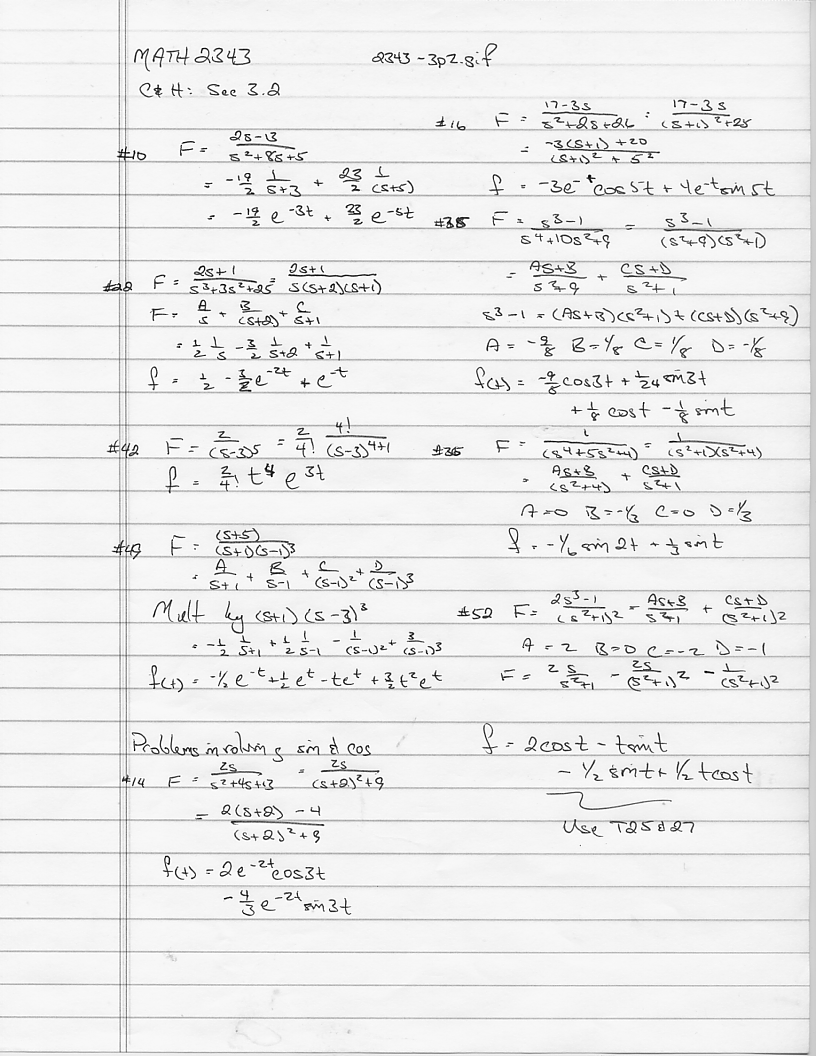 MATH 2343 2343-3p2.gif
C&H: Sec 3.2
#10 F = (2s-13)/(s²+8s+5)
= -19/2 1/(s+3) + 23/2 1/(s+5)
= -19/2 e^(-3t) + 23/2 e^(-5t)
#22 F = (2s+1)/(s³+3s²+2s) = (2s+1)/(s(s+2)(s+1))
F = A/s + B/(s+2) + C/(s+1)
= 1/2 1/s - 3/2 1/(s+2) + 1/(s+1)
f = 1/2 - 3/2 e^(-2t) + e^(-t)
#42 F = 2/(s-3)^5 = 2/4! 4!/(s-3)^(4+1)
f = 2/4! t⁴ e^(3t)
#49 F = (s+5)/((s+1)(s-1)³)
= A/(s+1) + B/(s-1) + C/(s-1)² + D/(s-1)³
Mult by (s+1)(s-3)³
= -1/2 1/(s+1) + 1/2 1/(s-1) - 1/(s-1)² + 3/(s-1)³
f(t) = -1/2 e^(-t) + 1/2 e^t - te^t + 3/2 t² e^t
Problems involving sin & cos
#14 F = 2s/(s²+4s+13) = 2s/((s+2)²+9)
= (2(s+2) - 4)/((s+2)²+9)
f(t) = 2e^(-2t) cos3t
- 4/3 e^(-2t) sin3t
#16 F = (17-3s)/(s²+2s+26) = (17-3s)/((s+1)²+25)
= (-3(s+1) + 20)/((s+1)² + 5²)
f = -3e^(-t) cos 5t + 4e^(-t) sin 5t
#35 F = (s³-1)/(s⁴+10s²+9) = (s³-1)/((s²+9)(s²+1))
= (As+B)/(s²+9) + (Cs+D)/(s²+1)
s³-1 = (As+B)(s²+1) + (Cs+D)(s²+9)
A = -9/8 B = 1/8 C = 1/8 D = -1/8
f(t) = -9/8 cos3t + 1/24 sin3t
+ 1/8 cost - 1/8 sint
#36 F = 1/(s⁴+5s²+4) = 1/((s²+1)(s²+4))
= (As+B)/(s²+4) + (Cs+D)/(s²+1)
A=0 B=-1/3 C=0 D=1/3
f = -1/6 sin 2t + 1/3 sint
#52 F = (2s³-1)/(s²+1)² = (As+B)/(s²+1) + (Cs+D)/(s²+1)²
A = 2 B=0 C=-2 D=-1
F = 2 s/(s²+1) - 2s/(s²+1)² - 1/(s²+1)²
f = 2cost - tsint
- 1/2 sint + 1/2 tcost
Use T25&27